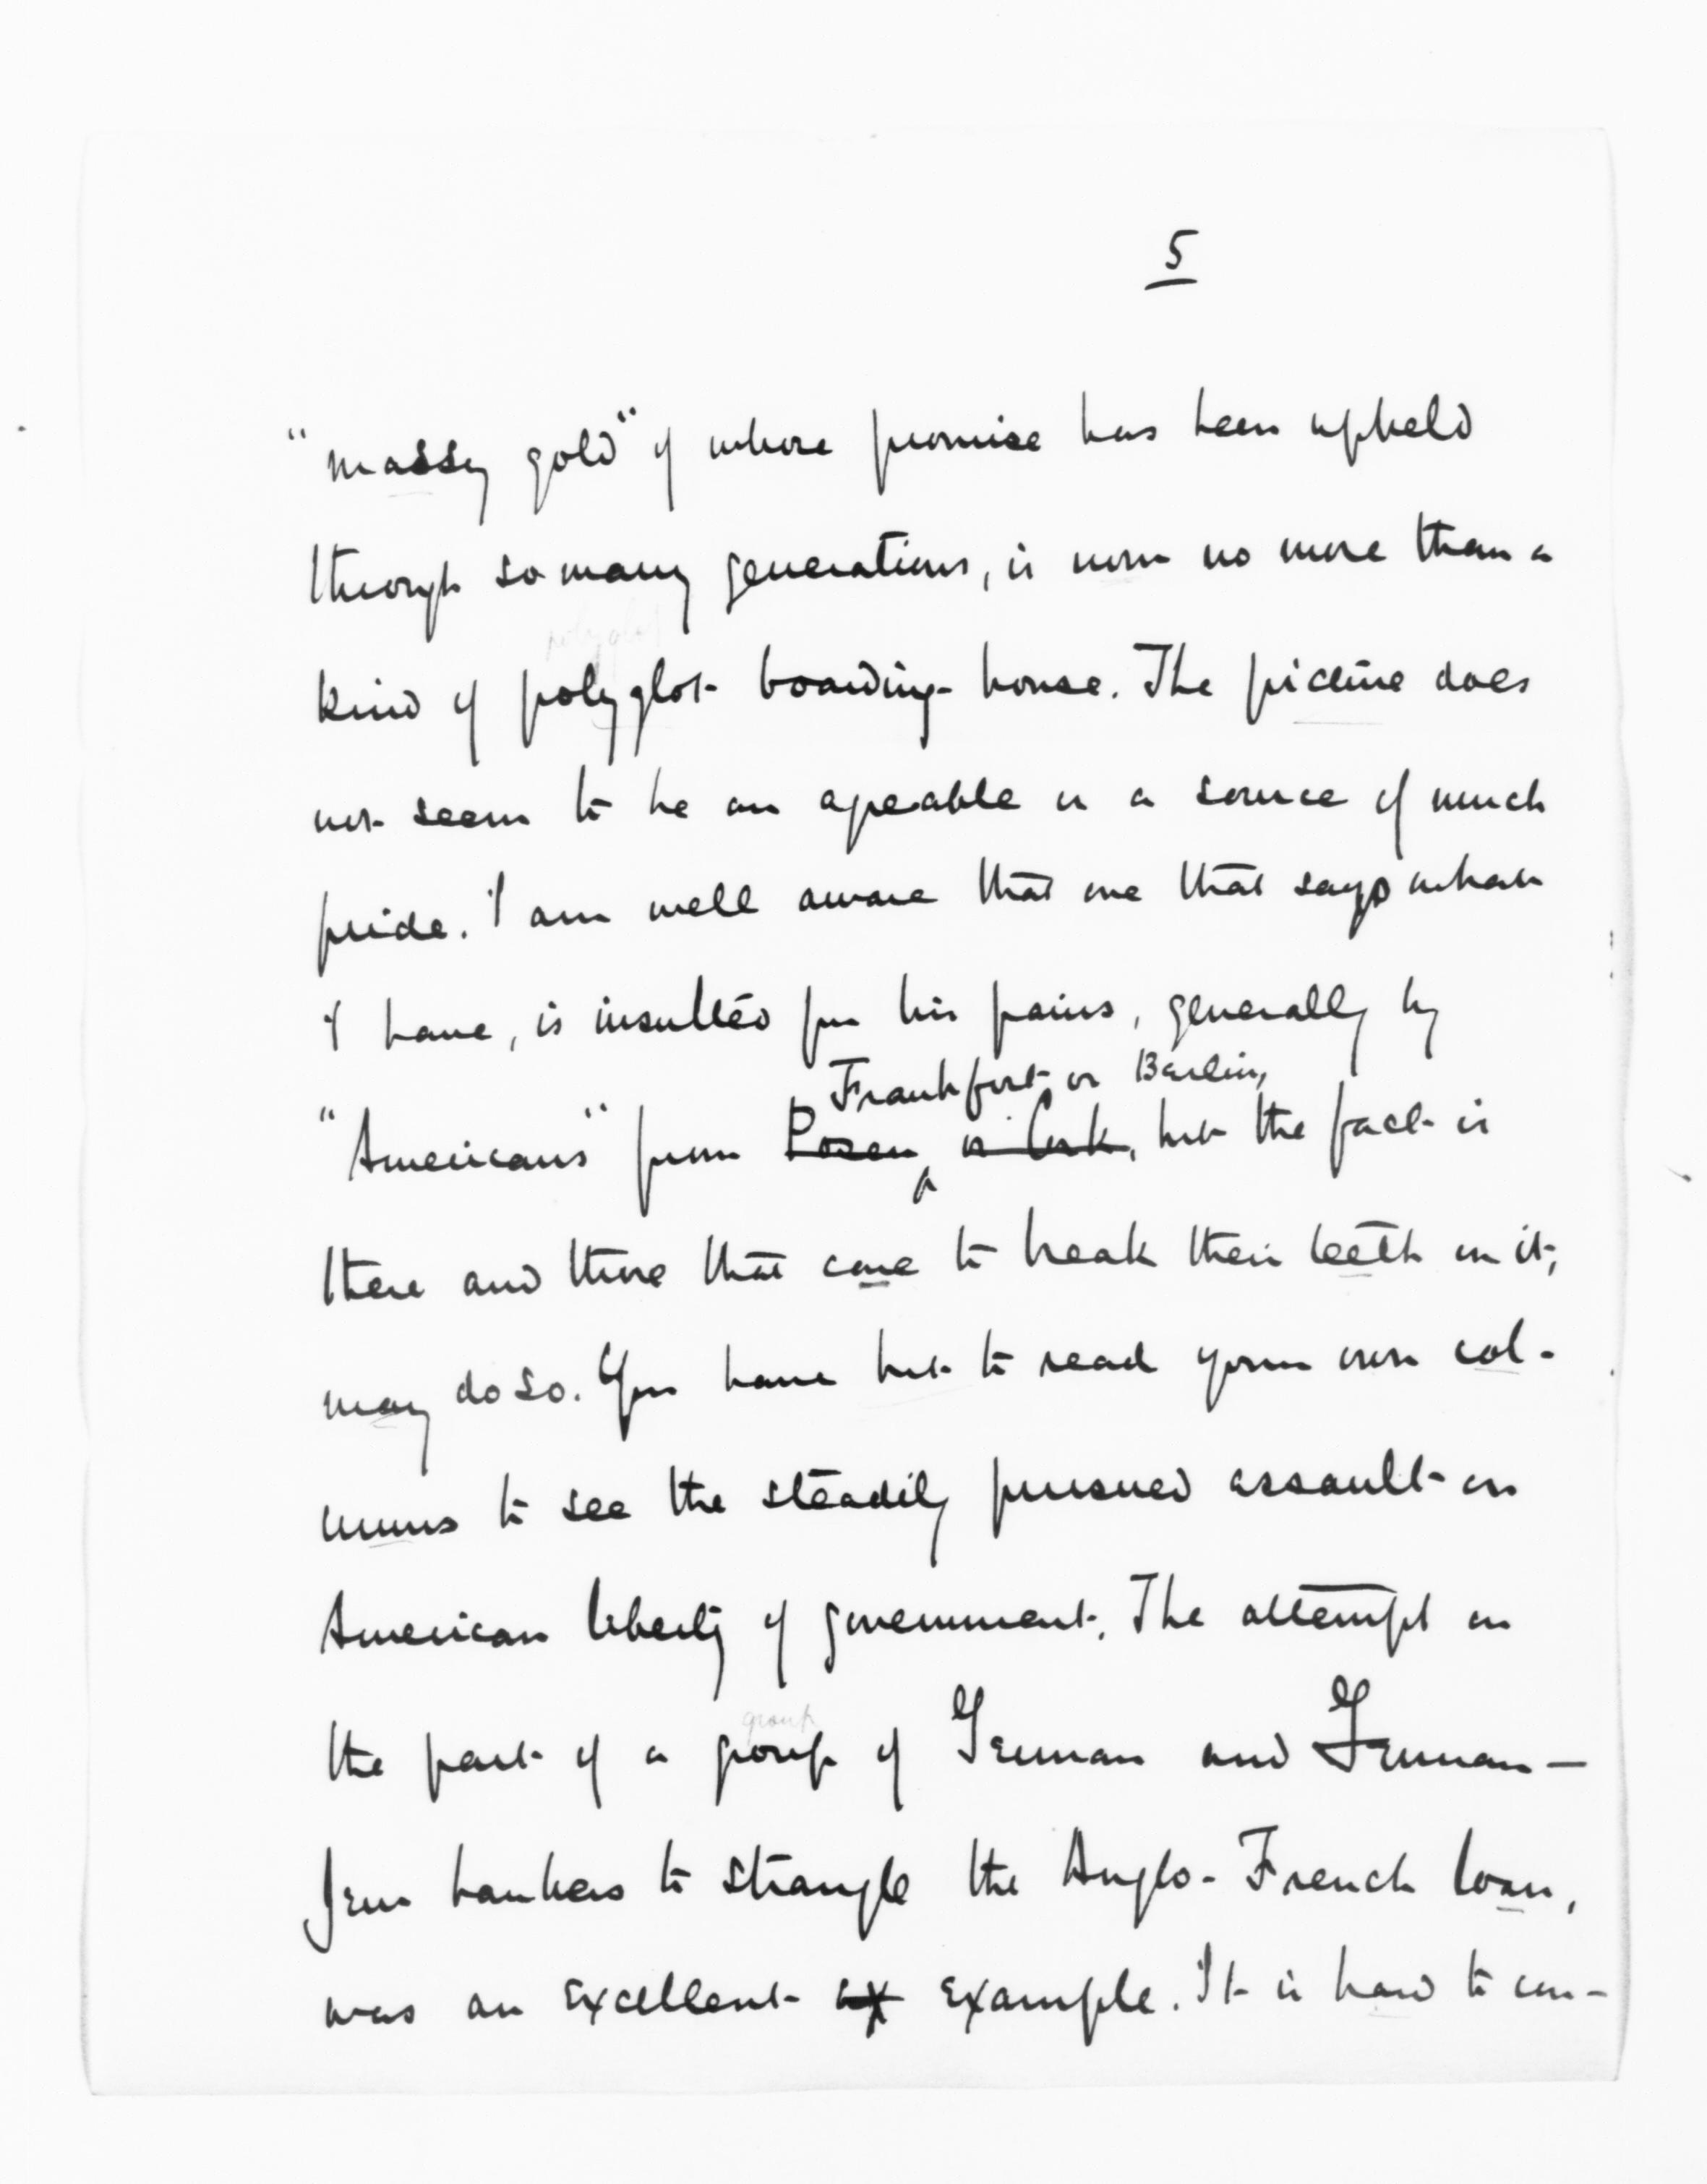 5
"massy gold" of whose promise has been upheld
through so many generations, is now no more than a
polyglot
kind of polyglot boarding-house. The picture does
not seem to be an agreable or a source of much
pride. I am well aware that one that says what
I have, is insulted for his pains, generally by
Frankfort or Berlin,
"Americans" from Posen or Cork, but the fact is
there and those that care to break their teeth on it,
may do so. You have but to read your own col-
umns to see the steadily pursued assault on
American liberty of government. The attempt on
group
the part of a group of German and German-
Jew bankers to strangle the Anglo-French loan,
was an excellent ex example. It is hard to con-